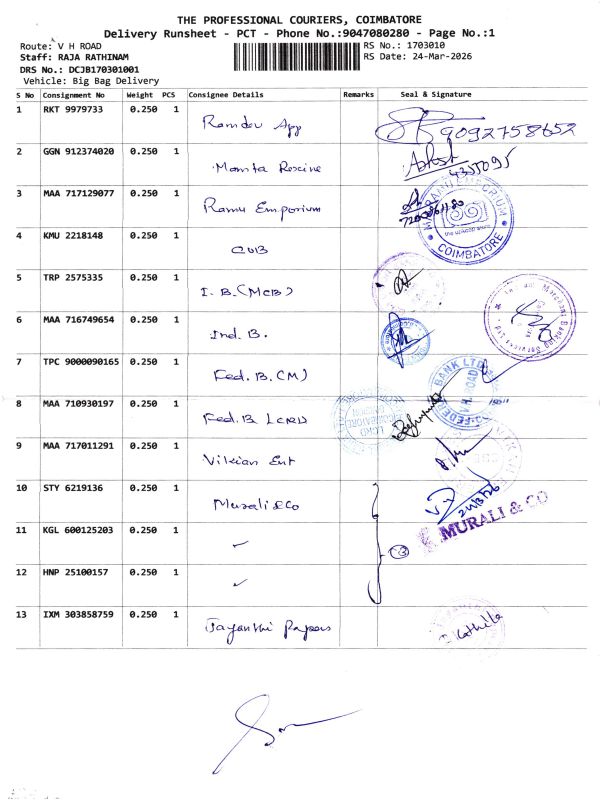 THE PROFESSIONAL COURIERS, COIMBATORE
Delivery Runsheet - PCT - Phone No.:9047080280 - Page No.:1
Route: V H ROAD
RS No.: 1703010
Staff: RAJA RATHINAM
RS Date: 24-Mar-2026
DRS No.: DCJB170301001
Vehicle: Big Bag Delivery
S No Consignment No Weight PCS Consignee Details Remarks Seal & Signature
1 RKT 9979733 0.250 1 Ramdev App 9092758652
2 GGN 912374020 0.250 1 Mamta Rexine
3 MAA 717129077 0.250 1 Ramu Emporium
COIMBATORE
4 KMU 2218148 0.250 1 CUB
5 TRP 2575335 0.250 1 I.B.(MCB)
6 MAA 716749654 0.250 1 Ind. B.
7 TPC 9000090165 0.250 1 Fed. B. (M)
BANK LTD
V.H. ROAD
8 MAA 710930197 0.250 1 Fed. B LCRD
9 MAA 717011291 0.250 1 Vikian Ent
10 STY 6219136 0.250 1 Murali & Co
24/3/26
MURALI & CO
11 KGL 600125203 0.250 1 ✓
12 HNP 25100157 0.250 1 ✓
13 IXM 303858759 0.250 1 Jayanthi Papers